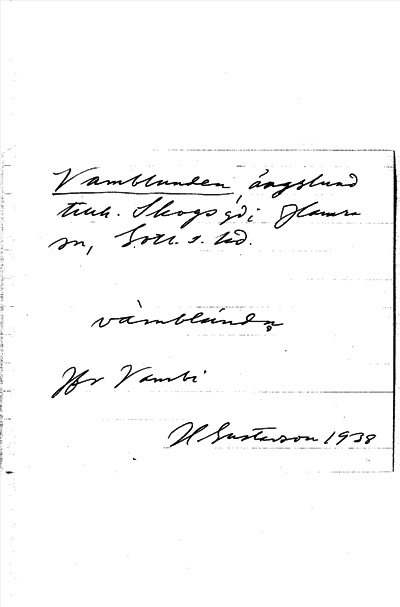 Vamblunden, ängslund
tillh. Skogs gd i Hamra
sn, Gotl. s. hd.
vàmblùndn̥
Jfr Vambi
H Gustavson 1938